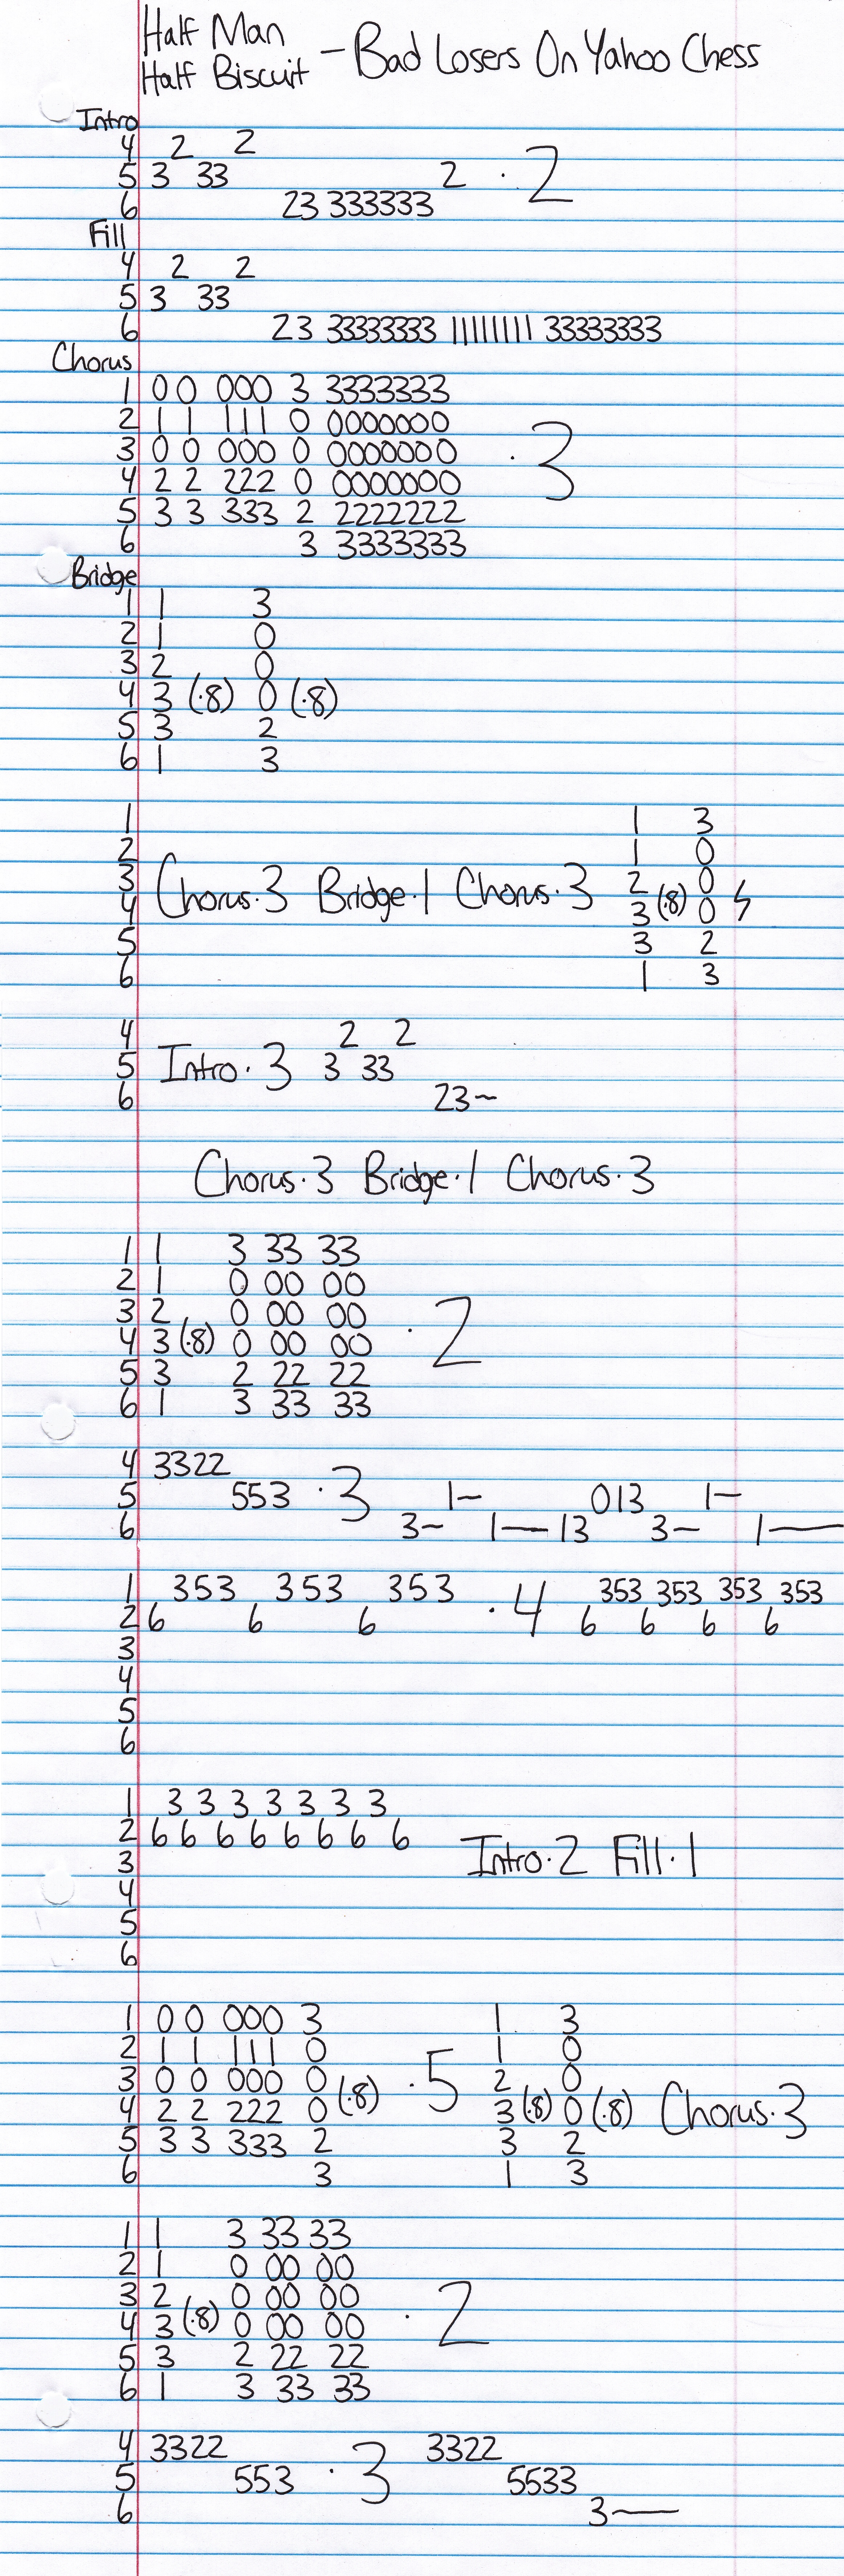 Half Man
Half Biscuit - Bad Losers On Yahoo Chess
Intro
4 2 2
5 3 33 2 · 2
6 23 333333
Fill
4 2 2
5 3 33
6 23 33333333 111111111 33333333
Chorus
1 0 0 000 3 3333333
2 1 1 111 0 0000000
3 0 0 000 0 0000000 · 3
4 2 2 222 0 0000000
5 3 3 333 2 2222222
6 3 3333333
Bridge
1 1 3
2 1 0
3 2 0
4 3 (·8) 0 (·8)
5 3 2
6 1 3
1 1 3
2 1 0
3 Chorus·3 Bridge·1 Chorus·3 2 0
4 3 (·8) 0
5 3 2
6 1 3
4 2 2
5 Intro·3 3 33
6 23~
Chorus·3 Bridge·1 Chorus·3
1 1 3 33 33
2 1 0 00 00
3 2 0 00 00 · 2
4 3 (·8) 0 00 00
5 3 2 22 22
6 1 3 33 33
4 3322
5 553 · 3 1— 013 1—
6 3~ 1— 13 3— 1—
1 353 353 353 · 4 353 353 353 353
2 6 6 6 6 6 6 6
3
4
5
6
1 3 3 3 3 3 3 3
2 6 6 6 6 6 6 6 6
3 Intro·2 Fill·1
4
5
6
1 0 0 000 3 1 3
2 1 1 111 0 1 0
3 0 0 000 0 (·8) · 5 2 0
4 2 2 222 0 3 (·8) 0 (·8) Chorus·3
5 3 3 333 2 3 2
6 3 1 3
1 1 3 33 33
2 1 0 00 00
3 2 0 00 00 · 2
4 3 (·8) 0 00 00
5 3 2 22 22
6 1 3 33 33
4 3322 3322
5 553 · 3 5533
6 3—